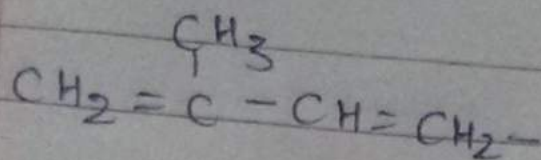 CH3
CH2 = C - CH = CH2 -